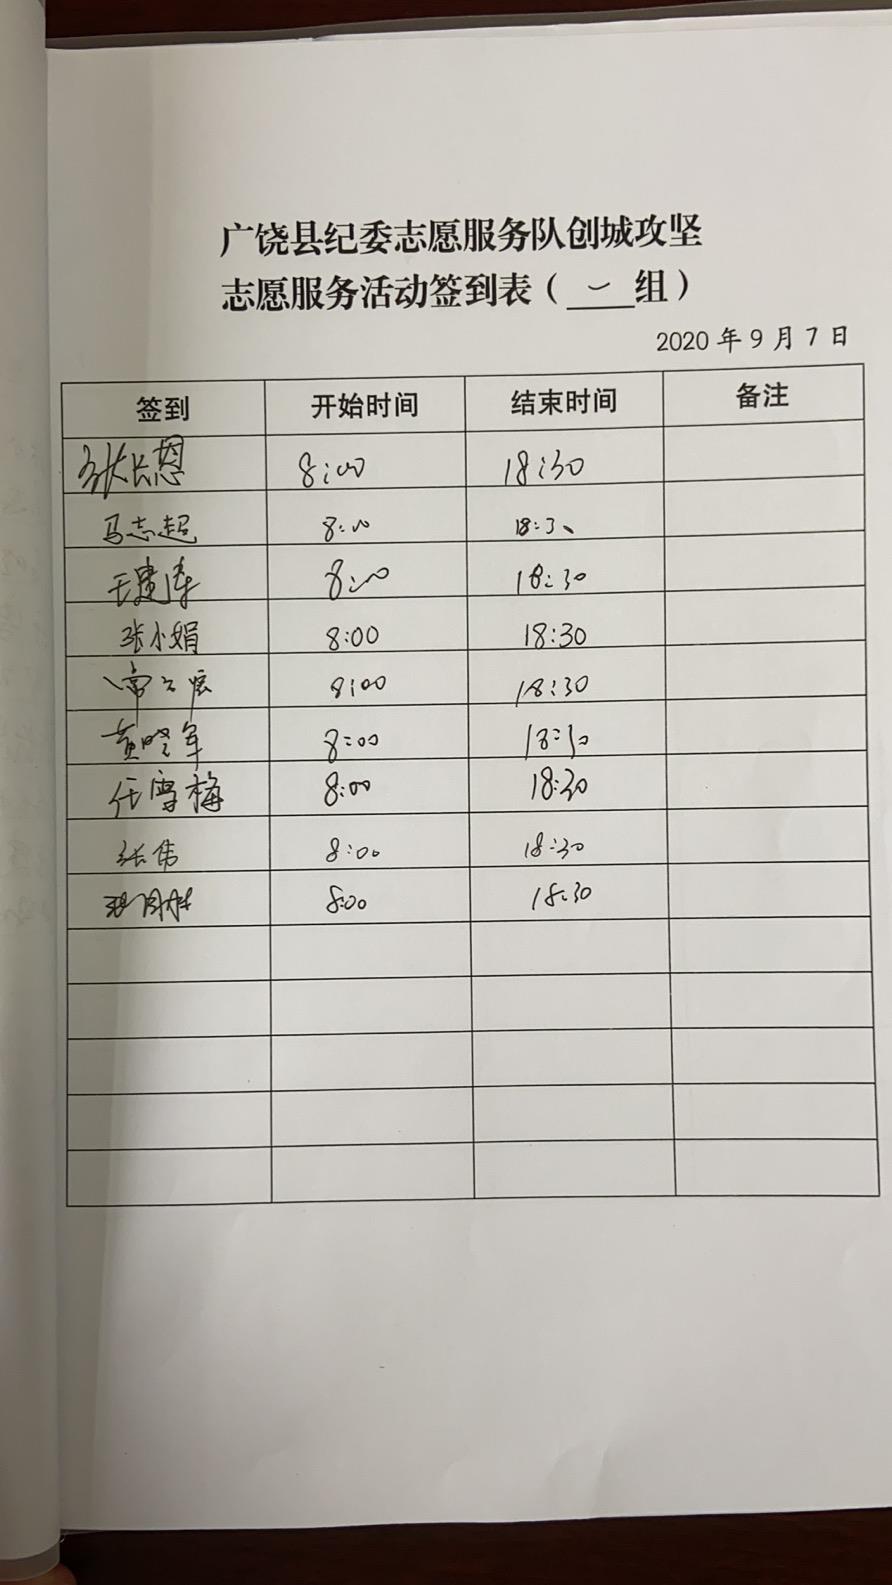 广饶县纪委志愿服务队创城攻坚
志愿服务活动签到表（一组）
2020年9月7日
签到 开始时间 结束时间 备注
张长恩 8:00 18:30
马志超 8:00 18:30
王建涛 8:00 18:30
张小娟 8:00 18:30
8:00 18:30
黄晓军 8:00 18:30
任雪梅 8:00 18:30
张伟 8:00 18:30
8:00 18:30